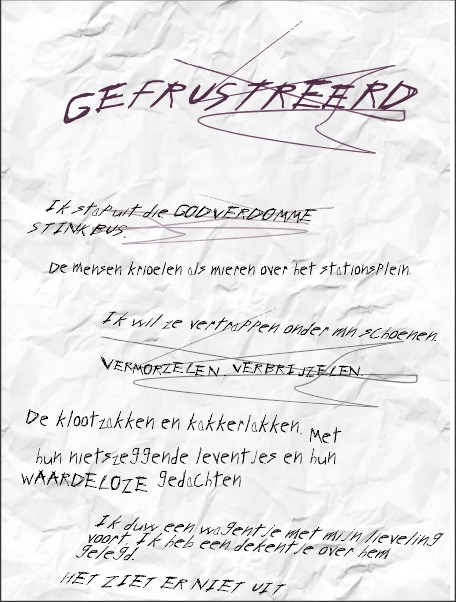 GEFRUSTREERD
Ik stap uit die GODVERDOMME
STINKBUS.
De mensen krioelen als mieren over het stationsplein.
Ik wil ze vertrappen onder mn schoenen.
VERMORZELEN. VERBRIJZELEN.
De klootzakken en kakkerlakken. Met
hun nietszeggende leventjes en hun
WAARDELOZE gedachten
Ik duw een wagentje met mijn lieveling
voort. Ik heb een dekentje over hem
gelegd.
HET ZIET ER NIET UIT